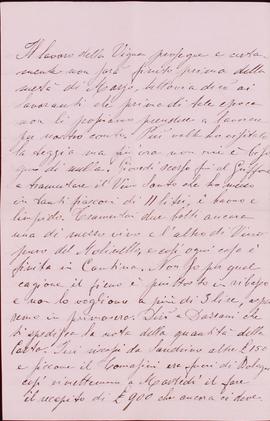 Il lavoro della Vigna prosegue e certa-
mente non sarà finito prima della
metà di Marzo, tuttavia dirò ai
lavoranti che prima di tale epoca
non li possiamo prendere a lavorare
per nostro conto. Più volte ho
la seggia ma per ora non vi è biso-
gno di nulla. Giovedì scorso fui al
a tramutare il Vino Santo che ho messo
in tanti fiasconi di 11 litri, è buono e
limpido. Tramutai due botti ancora
una di mezzo vino e l'altra di Vino
puro del Molinello, e così ogni cosa è
finita in Cantina. Non so per qual
cagione il fieno è piuttosto in ribasso
e non lo vogliono a più di 3 lire, aspet-
teremo in primavera. Dirò a che
ti spedisca la nota della quantità della
Carta. Ieri riscossi da Sandrino altre £ 150
e siccome il Tomassini era fuori di Bologna
così rimetteremo a Martedì il fare
il recapito di £ 900 che ancora ci deve.